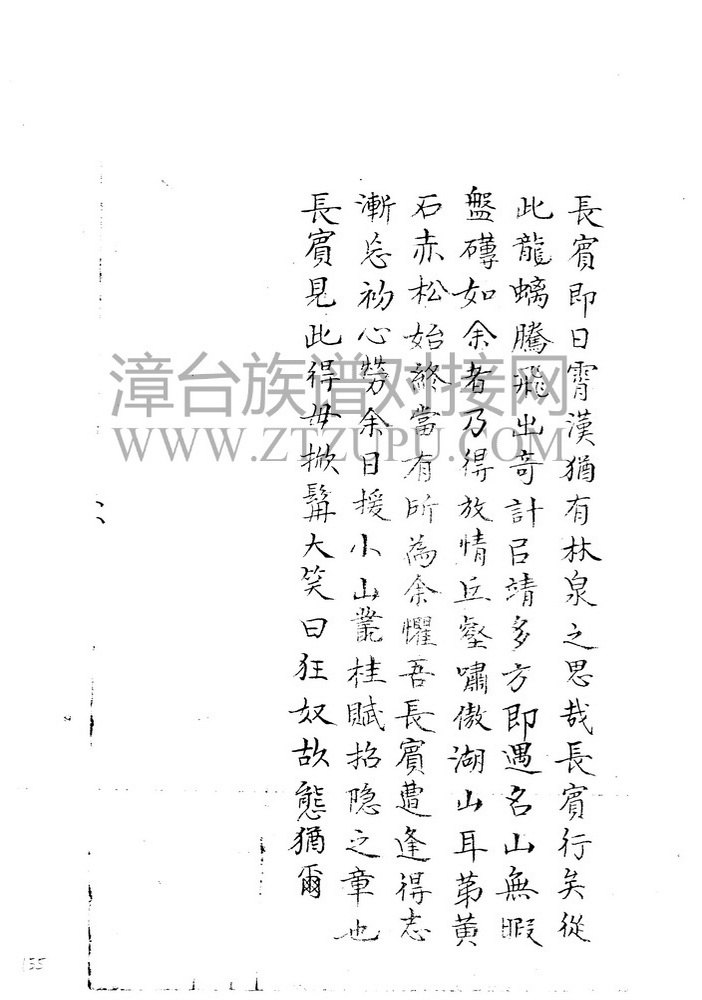 長賓即日霄漢猶有林泉之思哉長賓行矣從
此龍螭騰飛出奇計㠯靖多方即遇名山無暇
盤礴如余者乃得放情丘壑嘯傲湖山耳苐黄
石赤松始終當有所為余懼吾長賓遭逢得志
漸忘初心勞余日援小山叢桂賦招隐之章也
長賓見此得毋掀髯大笑曰狂奴故態猶爾
漳台族谱对接网
WWW.ZTZUPU.COM
135